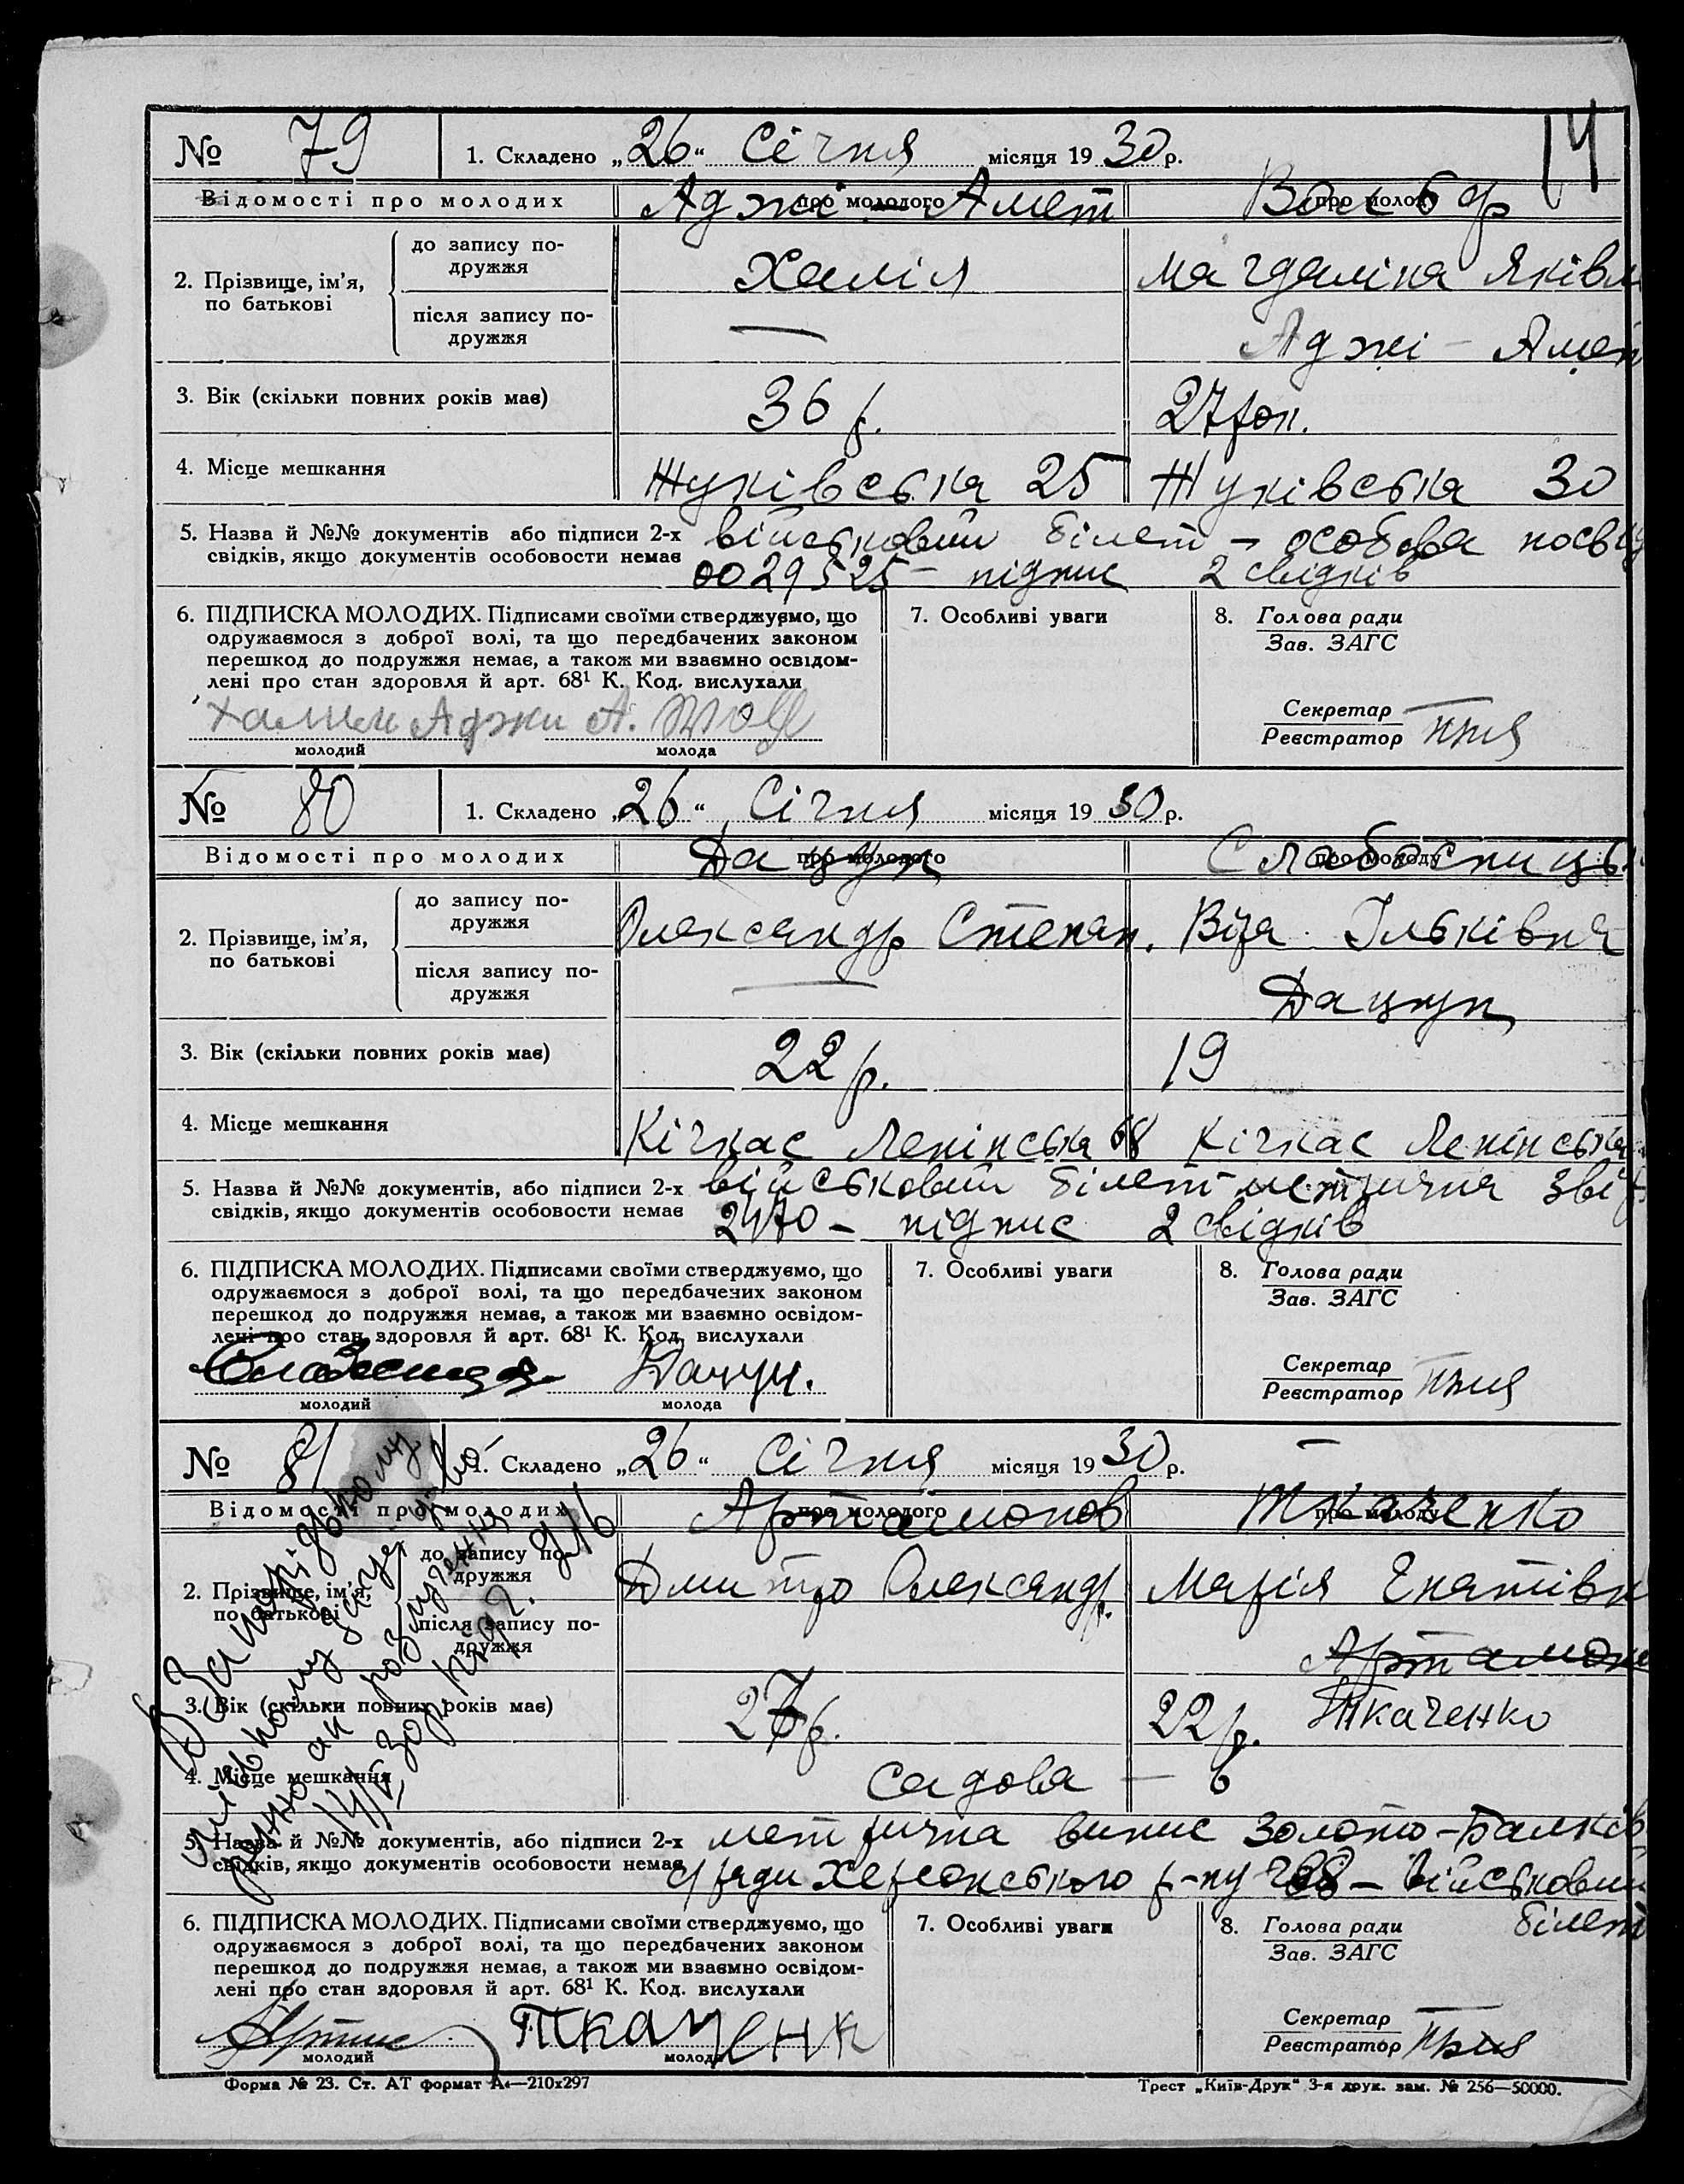 14
№ 79 1. Складено „26“ Січня місяця 1930 р.
Відомості про молодих про молодого про молоду
Аджі-Амет Вольф
2. Прізвище, ім’я, по батькові
до запису подружжя Халіл Магдаліна Яківл
після запису подружжя — Аджі-Амет
3. Вік (скільки повних років має) 36 р. 27 рок.
4. Місце мешкання Жуківська 25 Жуківська 30
5. Назва й №№ документів або підписи 2-х військовий білет – особова посвід
свідків, якщо документів особовости немає 0029525 – підпис 2 свідків
6. ПІДПИСКА МОЛОДИХ. Підписами своїми стверджуємо, що 7. Особливі уваги 8. Голова ради
одружаємося з доброї волі, та що передбачених законом Зав. ЗАГС
перешкод до подружжя немає, а також ми взаємно освідом-
лені про стан здоровля й арт. 68¹ К. Код. вислухали
Халил Аджи А. Wolf Секретар
молодий молода Реєстратор
№ 80 1. Складено „26“ Січня місяця 1930 р.
Відомості про молодих про молодого про молоду
Дацун Слабоспицьк
2. Прізвище, ім’я, по батькові
до запису подружжя Олександр Степан. Віра Ільківна
після запису подружжя — Дацун
3. Вік (скільки повних років має) 22 р. 19
4. Місце мешкання Кічкас Ленінська 68 Кічкас Ленінська
5. Назва й №№ документів, або підписи 2-х військовий білет метрична
свідків, якщо документів особовости немає 2470 – підпис 2 свідків
6. ПІДПИСКА МОЛОДИХ. Підписами своїми стверджуємо, що 7. Особливі уваги 8. Голова ради
одружаємося з доброї волі, та що передбачених законом Зав. ЗАГС
перешкод до подружжя немає, а також ми взаємно освідом-
лені про стан здоровля й арт. 68¹ К. Код. вислухали
Дацун. Секретар
молодий молода Реєстратор
№ 81 1. Складено „26“ Січня місяця 1930 р.
Відомості про молодих про молодого про молоду
Артамонов Ткаченко
2. Прізвище, ім’я, по батькові
до запису подружжя Дмитро Олександр. Марія Гнатівн
після запису подружжя Артамон
3. Вік (скільки повних років має) 27 р. 22 р. Ткаченко
4. Місце мешкання Садова – 6
5. Назва й №№ документів, або підписи 2-х метрична випис Золото-Балків
свідків, якщо документів особовости немає с/ради Херсонського р-ну – військовий
білет
6. ПІДПИСКА МОЛОДИХ. Підписами своїми стверджуємо, що 7. Особливі уваги 8. Голова ради
одружаємося з доброї волі, та що передбачених законом Зав. ЗАГС
перешкод до подружжя немає, а також ми взаємно освідом-
лені про стан здоровля й арт. 68¹ К. Код. вислухали
Ткаченк Секретар
молодий молода Реєстратор
В Запорізькому
міському загсі
розлучення
Форма № 23. Ст. АТ формат А₄—210х297 Трест „Київ-Друк“ 3-я друк. зам. № 256—50000.